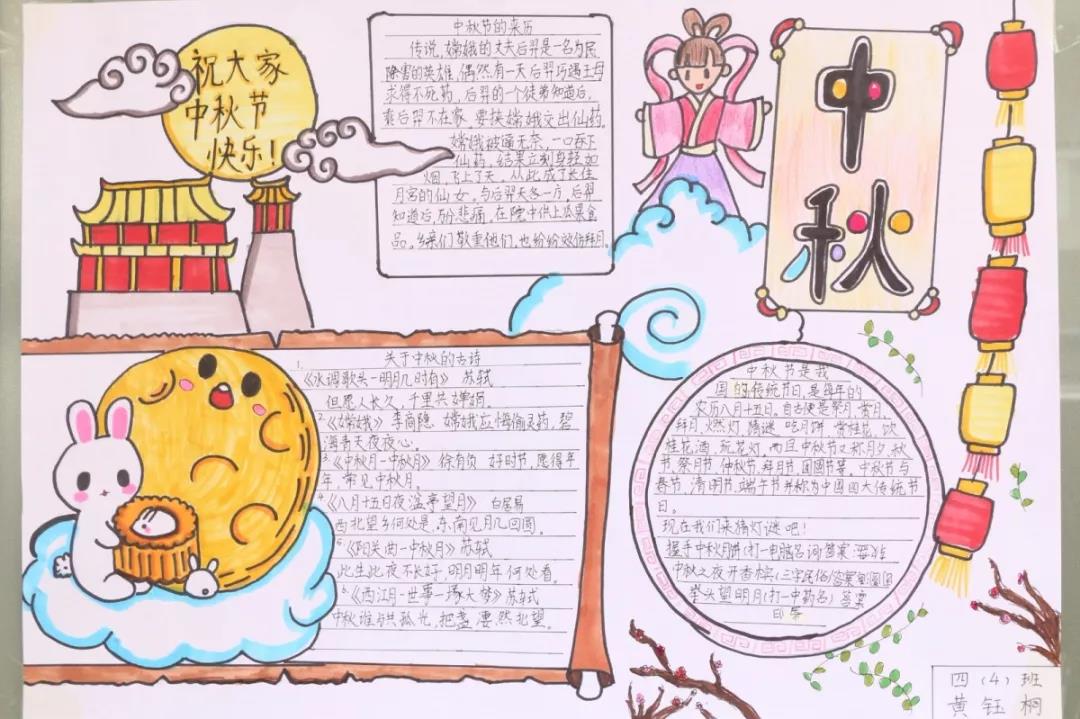 祝大家
中秋节
快乐!
中秋节的来历
传说,嫦娥的丈夫后羿是一名为民
除害的英雄,偶然有一天后羿巧遇王母
求得不死药,后羿的一个徒弟知道后,
乘后羿不在家,要挟嫦娥交出仙药。
嫦娥被逼无奈,一口吞下
仙药,结果立刻身轻如
烟,飞上了天。从此成了长住
月宫的仙女。与后羿天各一方,后羿
知道后,万分悲痛,在院中供上瓜果食
品。乡亲们敬重他们,也纷纷效仿拜月。
中秋
关于中秋的古诗
1.《水调歌头-明月几时有》 苏轼
但愿人长久,千里共婵娟。
2.《嫦娥》 李商隐 嫦娥应悔偷灵药,碧
海青天夜夜心。
3.《中秋月-中秋月》 徐有贞 好时节,愿得年
年,常见中秋月。
4.《八月十五日夜湓亭望月》 白居易
西北望乡何处是,东南见月几回圆。
5.《阳关曲-中秋月》苏轼
此生此夜不长好,明月明年何处看。
6.《西江月-世事一场大梦》苏轼
中秋谁与共孤光,把盏凄然北望。
中秋节是我
国的传统节日,是每年的
农历八月十五日。自古便是祭月,赏月,
拜月,燃灯,猜谜,吃月饼,赏桂花,饮
桂花酒,玩花灯,而且中秋节又称月夕,秋
节,祭月节,仲秋节,拜月节,团圆节等,中秋节与
春节,清明节,端午节并称为中国四大传统节
日。
现在我们来猜灯谜吧!
握手中秋月饼(打一电脑名词)答案:
中秋之夜开香槟(三字民俗)答案
举头望明月(打一中药名) 答案
四(4)班
黄钰桐